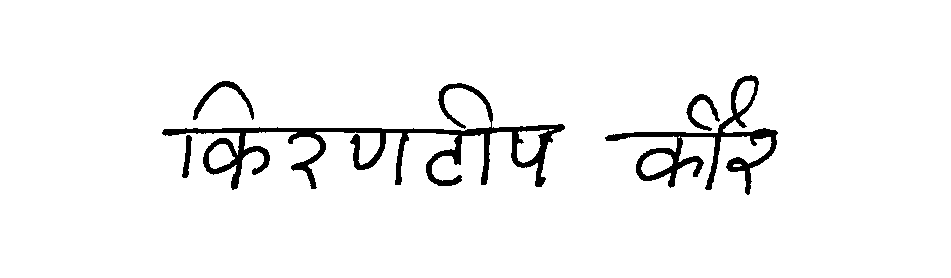 किरणटीप कौर